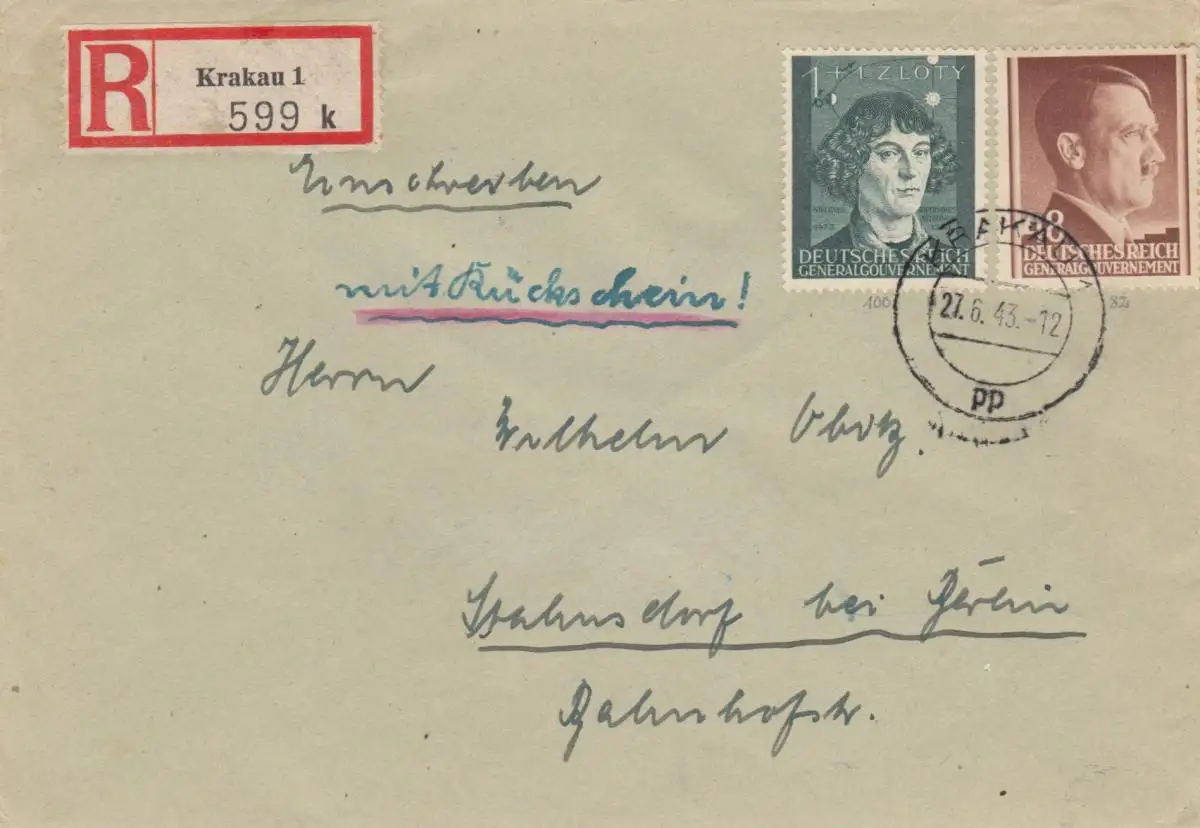 R
Krakau 1
599 k
1 + 1 ZLOTY
1473
DEUTSCHES REICH
GENERALGOUVERNEMENT
8
DEUTSCHES REICH
GENERALGOUVERNEMENT
KRAKAU 1
27.6.43.-12
pp
Einschreiben
mit Rückschein!
Herrn
Wilhelm Obitz.
Stahnsdorf bei Berlin
Bahnhofstr.